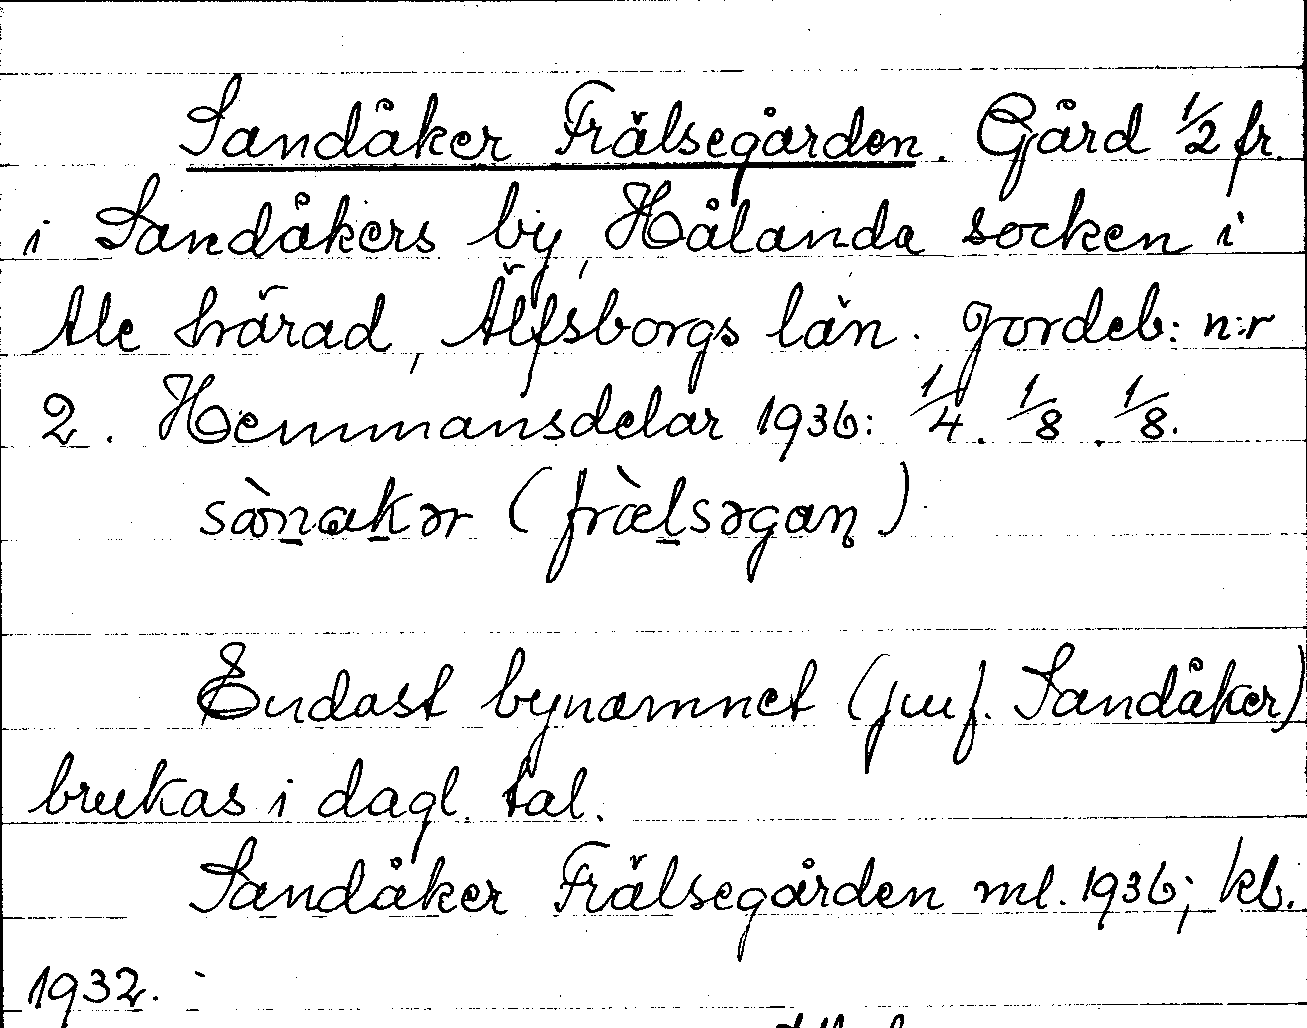 Sandåker Frälsegården. Gård 1/2 fr.
i Sandåkers by, Hålanda socken i
Ale härad, Älfsborgs län. Jordeb: n:r
2. Hemmansdelar 1936: 1/4. 1/8. 1/8.
sànakər (fràlsəgaɳ)
Endast bynamnet (jmf. Sandåker)
brukas i dagl. tal.
Sandåker Frälsegården ml. 1936; kb.
1932.